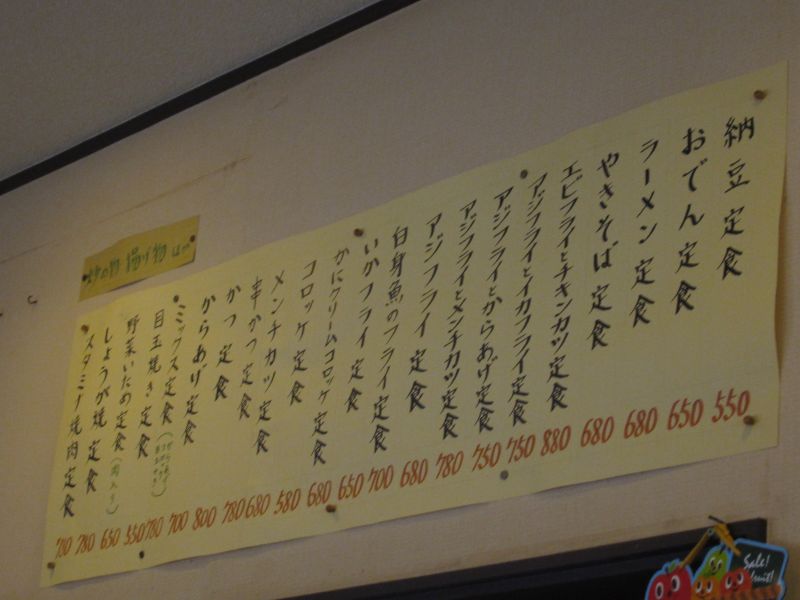 納豆定食 550
おでん定食 650
ラーメン定食 680
やきそば定食 680
エビフライとチキンカツ定食 880
アジフライとイカフライ定食 750
アジフライとからあげ定食 750
アジフライとメンチカツ定食 780
アジフライ定食 680
白身魚のフライ定食 700
いかフライ定食 650
かにクリームコロッケ定食 680
コロッケ定食 580
メンチカツ定食 680
串かつ定食 780
かつ定食 800
からあげ定食 700
ミックス定食 780
目玉焼き定食 550
野菜いため定食(肉入り) 650
しょうが焼定食 780
スタミナ焼肉定食
揚げ物は
Sale!